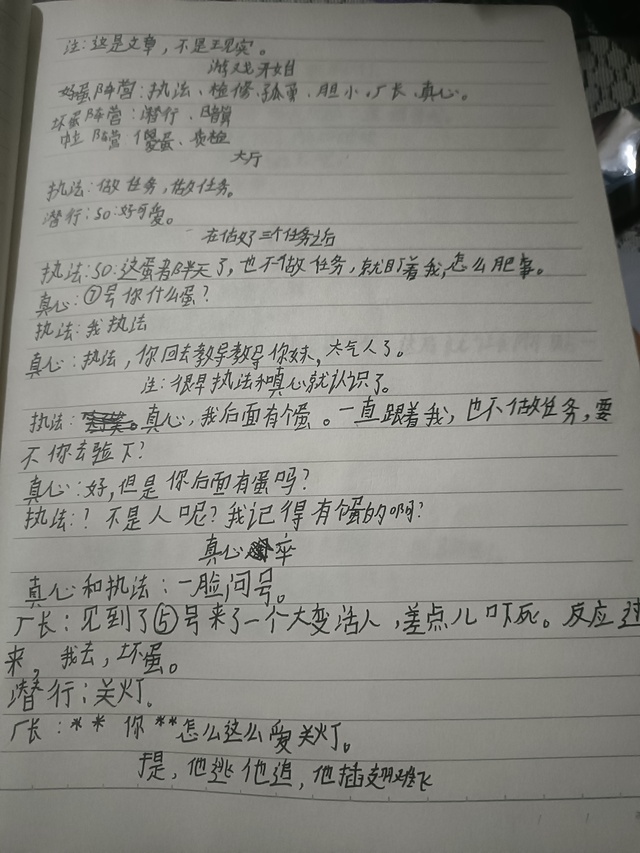 注：这是文章，不是现实。
游戏开始
好蛋阵营：执法、检修、孤蛋、胆小、厂长、真心。
坏蛋阵营：潜行、
中立阵营 傻蛋、
大厅
执法：做任务，做任务。
潜行：SO：好可爱。
在做好三个任务之后
执法：SO：这蛋都半天了，也不做任务，就盯着我，怎么肥事。
真心：⑦号你什么蛋？
执法：我执法
真心：执法，你回去教导教导你妹，太气人了。
注：很早执法和真心就认识了。
执法：真心，我后面有个蛋。一直跟着我，也不做任务，要
不你去验下？
真心：好，但是你后面有蛋吗？
执法：？不是人呢？我记得有个蛋的啊？
真心卒
真心和执法：一脸问号。
厂长：见到了⑤号来了一个大变活人，差点儿吓死。反应过
来，我去，坏蛋。
潜行：关灯。
厂长：** 你**怎么这么爱关灯。
提，他逃他追，他插翅难飞